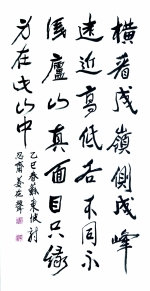 橫看成嶺側成峰
遠近高低各不同不
識廬山真面目只緣
身在此山中
乙巳春蘇東坡詩